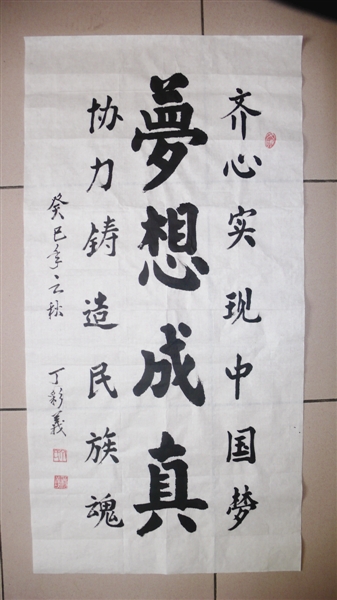 齐心实现中国梦
夢想成真
协力铸造民族魂
癸巳年之秋
丁彩義